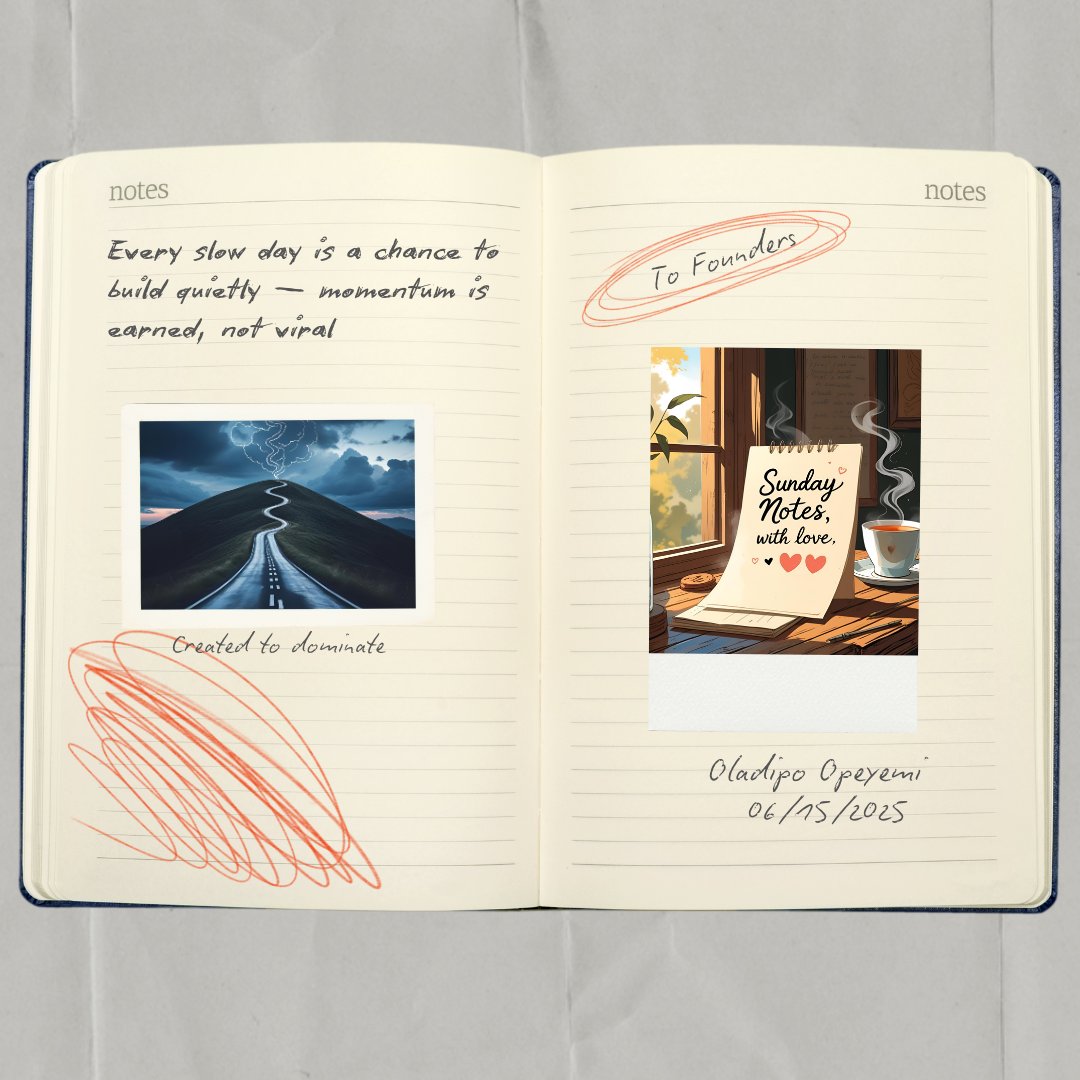 notes
Every slow day is a chance to
build quietly — momentum is
earned, not viral
Created to dominate
notes
To Founders
Sunday
Notes,
with love,
Oladipo Opeyemi
06/15/2025